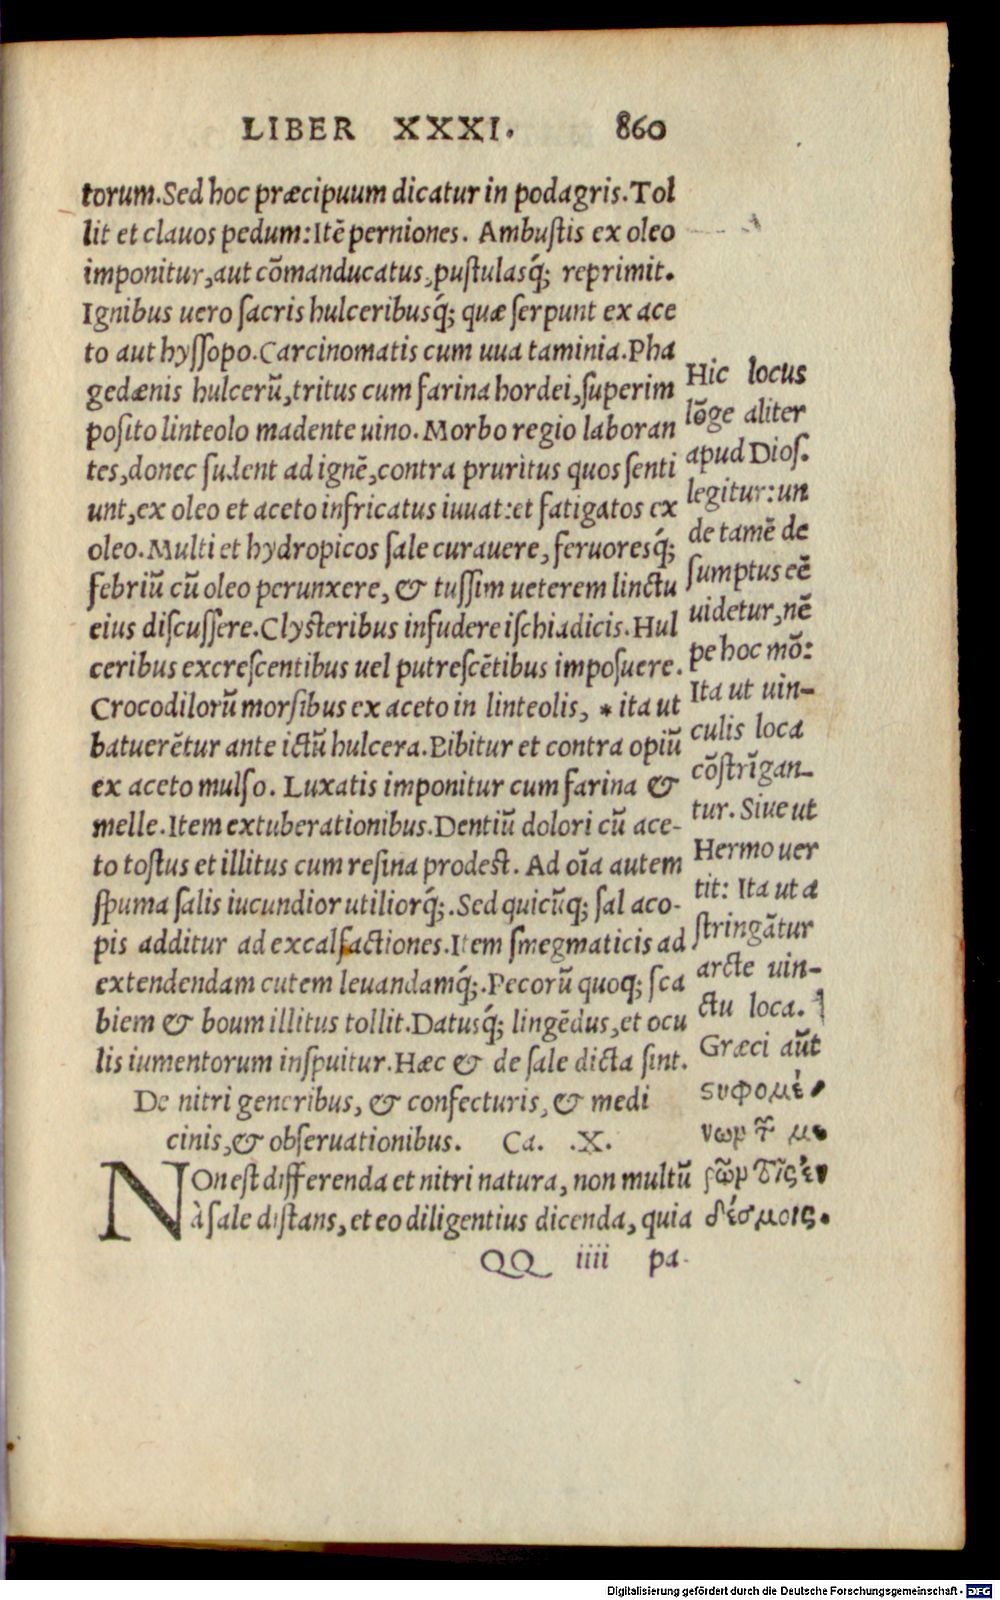 LIBER XXXI. 860
torum. Sed hoc præcipuum dicatur in podagris. Tol
lit et clauos pedum: Itē perniones. Ambustis ex oleo
imponitur, aut cōmanducatus, pustulasq́; reprimit.
Ignibus uero sacris hulceribusq́; quæ serpunt ex ace
to aut hyssopo. Carcinomatis cum uua taminia. Pha
gedænis hulcerū, tritus cum farina hordei, superim
posito linteolo madente uino. Morbo regio laboran
tes, donec sudent ad ignē, contra pruritus quos senti
unt, ex oleo et aceto infricatus iuuat: et fatigatos ex
oleo. Multi et hydropicos sale curauere, feruoresq́;
febriū cū oleo perunxere, & tussim ueterem linctu
eius discussere. Clysteribus infudere ischiadicis. Hul
ceribus excrescentibus uel putrescētibus imposuere.
Crocodilorū morsibus ex aceto in linteolis, * ita ut
batuerētur ante ictū hulcera. Bibitur et contra opiū
ex aceto mulso. Luxatis imponitur cum farina &
melle. Item extuberationibus. Dentiū dolori cū ace-
to tostus et illitus cum resina prodest. Ad oīa autem
spuma salis iucundior utiliorq́;. Sed quicūq; sal aco-
pis additur ad excalfactiones. Item smegmaticis ad
extendendam cutem leuandamq́;. Pecorū quoq; sca
biem & boum illitus tollit. Datusq́; lingēdus, et ocu
lis iumentorum inspuitur. Hæc & de sale dicta sint.
De nitri generibus, & confecturis, & medi
cinis, & obseruationibus. Ca. .X.
NOn est differenda et nitri natura, non multū
à sale distans, et eo diligentius dicenda, quia
QQ iiii pa-
Hic locus
lōge aliter
apud Dios.
legitur: un
de tamē de
sumptus eē
uidetur, nē
pe hoc mō:
Ita ut uin-
culis loca
cōstrīgan-
tur. Siue ut
Hermo uer
tit: Ita ut a
stringātur
arcte uin-
ctu loca.
Græci aūt
δέσμοις.